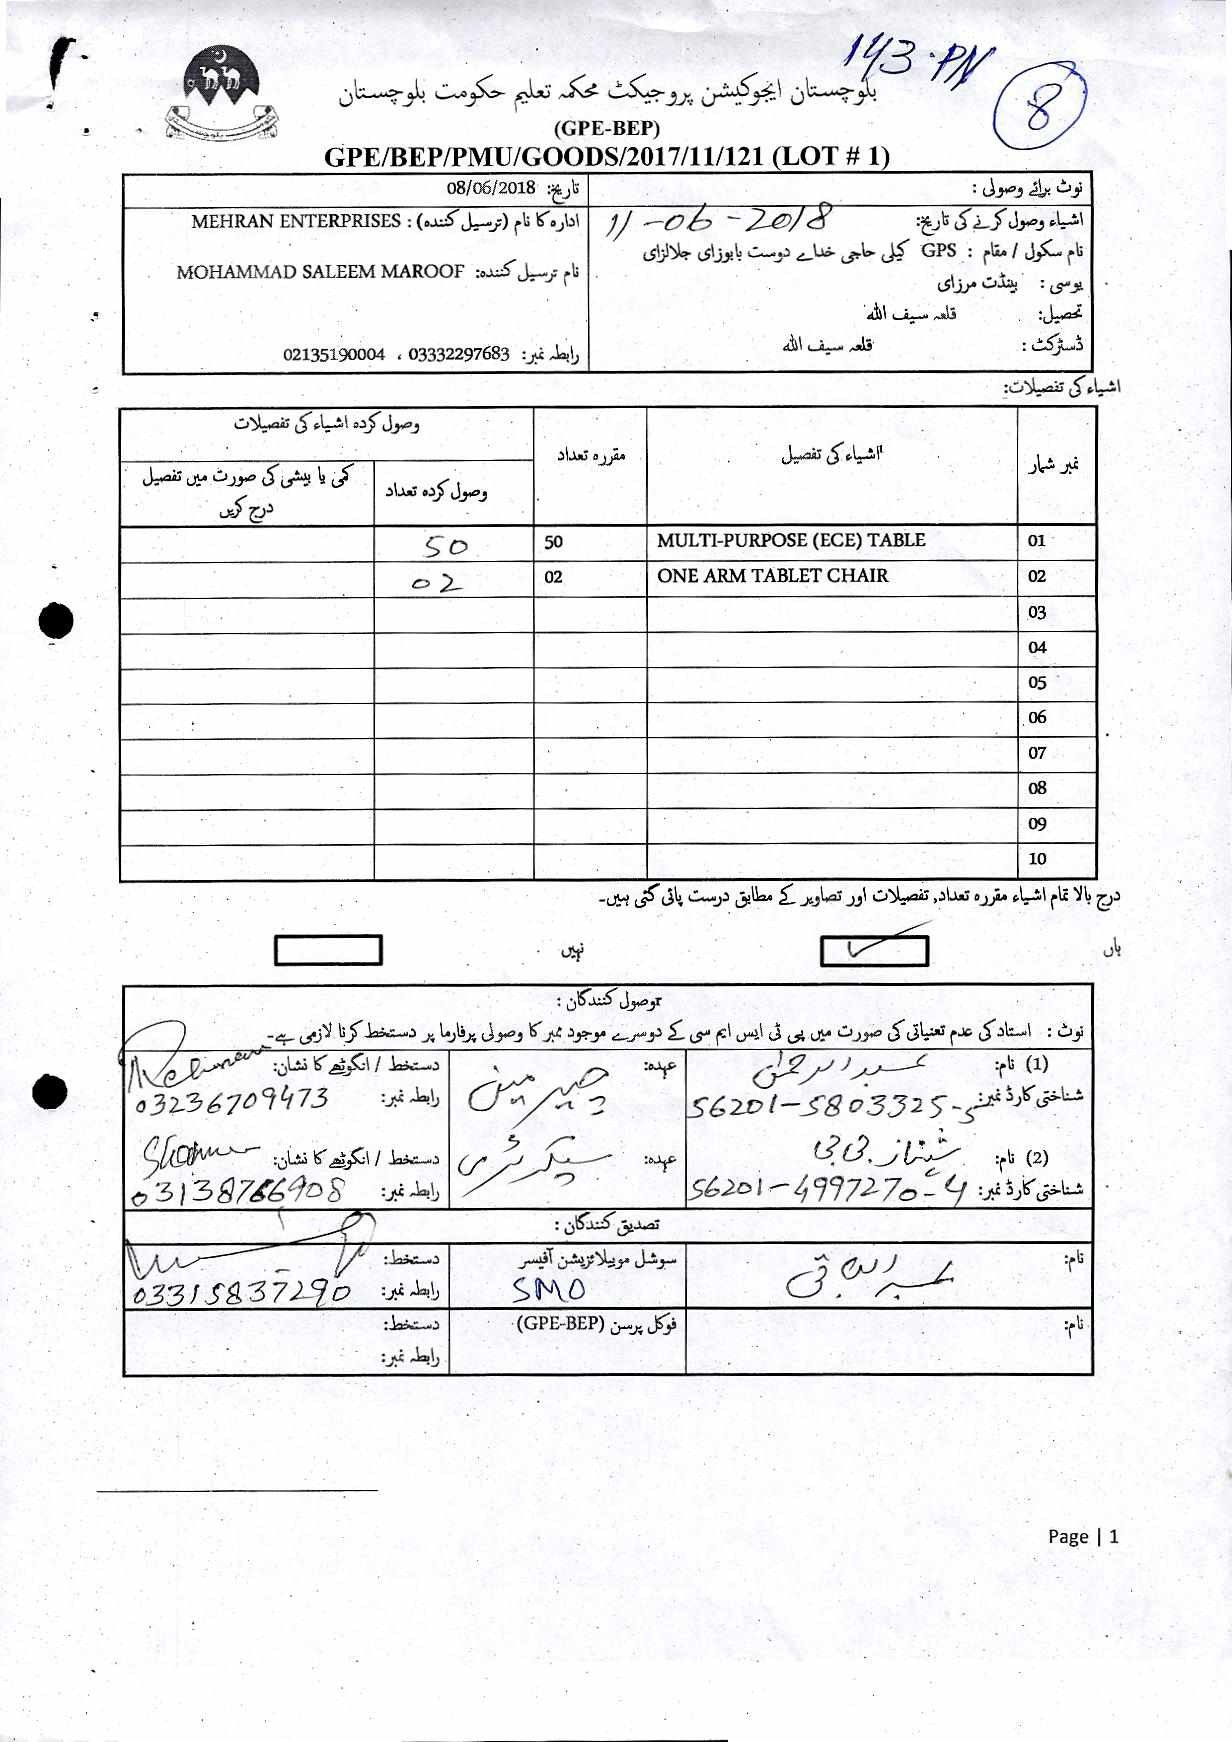 143-PN
8
بلوچستان ایجوکیشن پروجیکٹ محکمہ تعلیم حکومت بلوچستان
(GPE-BEP)
GPE/BEP/PMU/GOODS/2017/11/121 (LOT # 1)
نوٹ برائے وصولی :
تاریخ: 08/06/2018
اشیاء وصول کرنے کی تاریخ: 11-06-2018
ادارہ کا نام (ترسیل کنندہ) : MEHRAN ENTERPRISES
نام سکول / مقام : GPS کیلی حاجی خدائے دوست بابوزای جلالزای
نام ترسیل کنندہ: MOHAMMAD SALEEM MAROOF
یوسی : بینڈت مرزای
تحصیل: قلعہ سیف اللہ
ڈسٹرکٹ : قلعہ سیف اللہ
رابطہ نمبر: 03332297683 ، 02135190004
اشیاء کی تفصیلات:
نمبر شمار
اشیاء کی تفصیل
مقررہ تعداد
وصول کردہ اشیاء کی تفصیلات
وصول کردہ تعداد
کمی یا بیشی کی صورت میں تفصیل
درج کریں
01 MULTI-PURPOSE (ECE) TABLE 50 50
02 ONE ARM TABLET CHAIR 02 02
03
04
05
06
07
08
09
10
درج بالا تمام اشیاء مقررہ تعداد, تفصیلات اور تصاویر کے مطابق درست پائی گئی ہیں۔
ہاں ✓ نہیں
وصول کنندگان :
نوٹ : استاد کی عدم تعنیاتی کی صورت میں پی ٹی ایس ایم سی کے دوسرے موجود ممبر کا وصولی پرفارما پر دستخط کرنا لازمی ہے۔
(1) نام: عبدالرحمٰن عہدہ: چیرمین دستخط / انگوٹھے کا نشان: Rehman
شناختی کارڈ نمبر: 56201-5803325-5 رابطہ نمبر: 03236709473
(2) نام: شہناز بی بی عہدہ: سیکرٹری دستخط / انگوٹھے کا نشان:
شناختی کارڈ نمبر: 56201-4997270-4 رابطہ نمبر: 03138766908
تصدیق کنندگان :
نام: عبدالباقی سوشل موبیلائزیشن آفیسر دستخط:
SMO رابطہ نمبر: 03315837290
نام: فوکل پرسن (GPE-BEP) دستخط:
رابطہ نمبر:
Page | 1